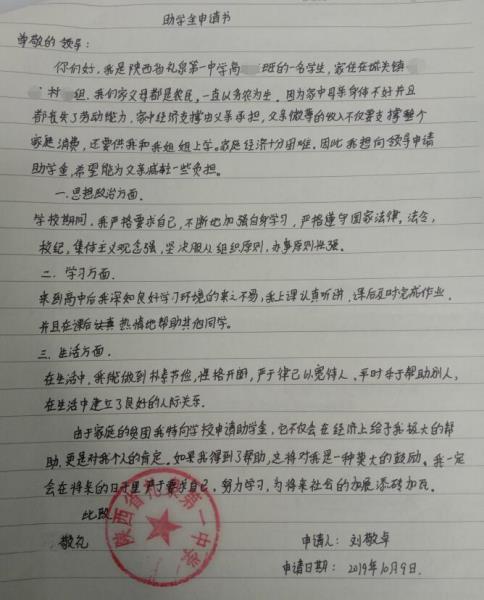 助学金申请书
尊敬的领导:
你们好,我是陕西省礼泉第一中学高 班的一名学生,家住在城关镇
村 组,我们家父母都是农民,一直以务农为生。因为家中母亲身体不好并且
都丧失了劳动能力,家中经济支撑由父亲承担,父亲微薄的收入不仅要支撑整个
家庭消费,还要供我和我姐姐上学。家庭经济十分困难。因此我想向领导申请
助学金,希望能为父亲减轻一些负担。
一.思想政治方面.
学校期间,我严格要求自己,不断地加强自身学习,严格遵守国家法律,法令,
校纪,集体主义观念强,坚决服从组织原则,办事原则性强。
二.学习方面.
来到高中后我深知良好学习环境的来之不易,我上课认真听讲.课后及时完成作业,
并且在课后 热情地帮助其他同学。
三.生活方面.
在生活中,我能做到朴素节俭,性格开朗,严于律己以宽待人。平时乐于帮助别人,
在生活中建立了良好的人际关系.
由于家庭的贫困我特向学校申请助学金,它不仅会在经济上给予我极大的帮
助,更是对我个人的肯定。如果我得到了帮助,这将对我是一种莫大的鼓励。我一定
会在将来的日子里严于要求自己,努力学习,为将来社会的发展添砖加瓦。
此致
敬礼
陕西省礼泉第一中学
申请人:刘敬卓
申请日期:2019年10月9日.